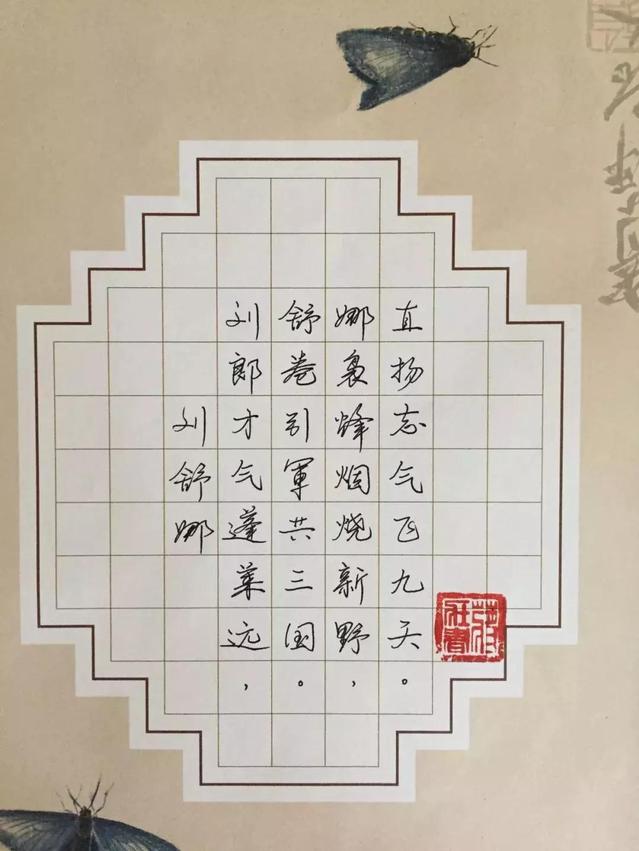 刘舒娜
刘郎才气蓬莱远，
舒卷引軍共三国。
娜袅烽烟烧新野，
直扬志气飞九天。